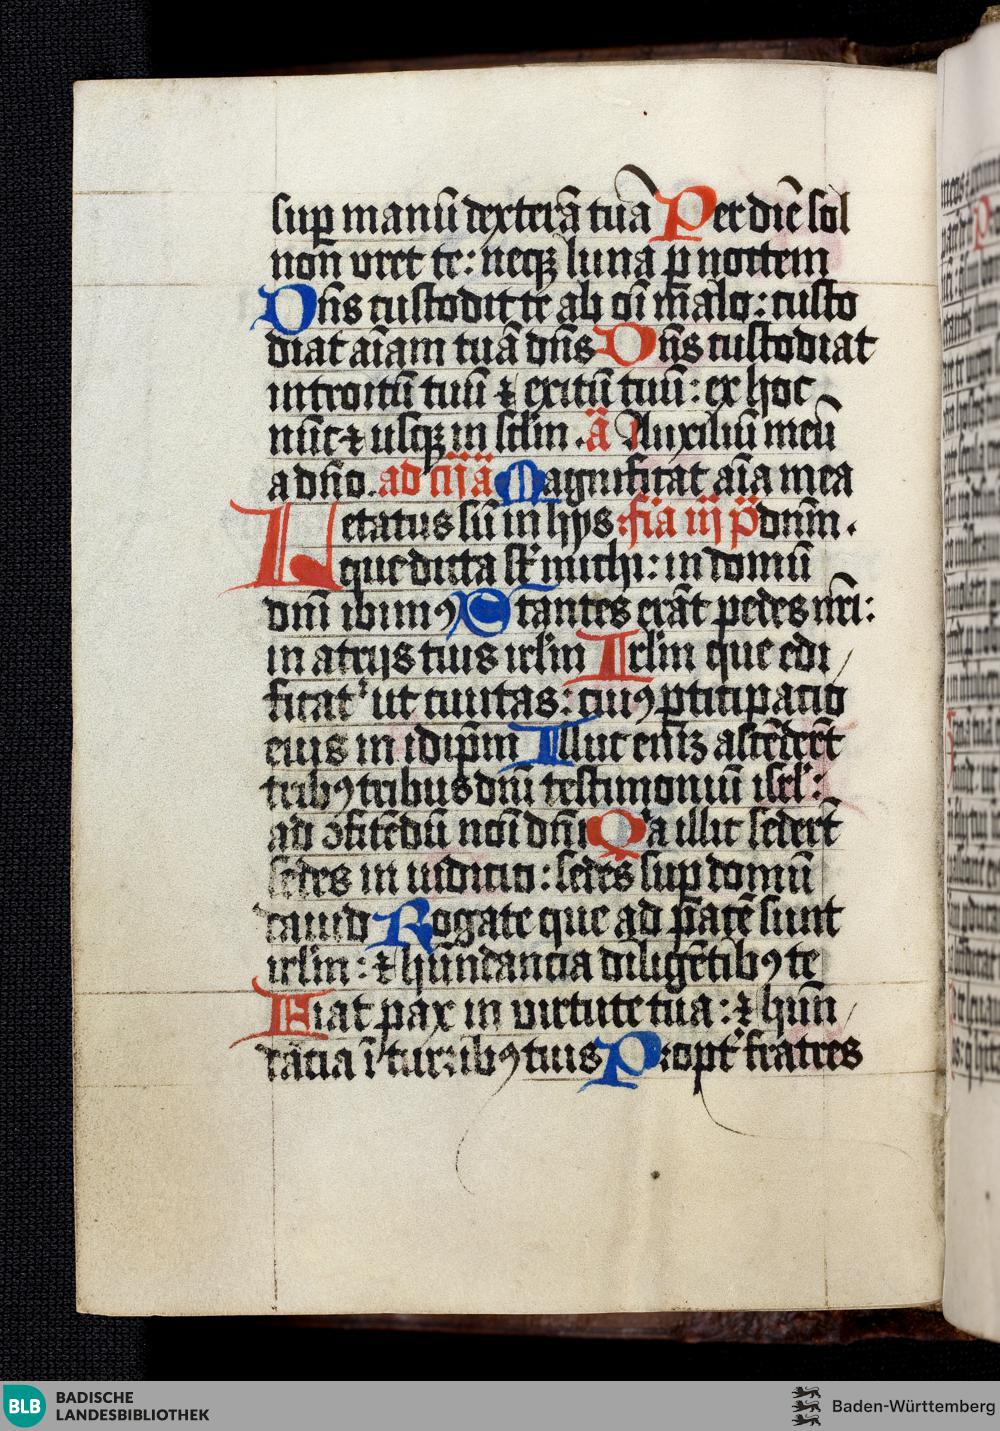 sup̲ manū dexterā tuā Per diē sol
non vret te: neqꝫ luna p̲ noctem
Dn̄s custodit te ab oī malo: custo
diat aīam tuā dn̄s Dn̄s custodiat
introitū tuū ⁊ exitū tuū: ex hoc
nūc ⁊ usqꝫ in sclm̄. ā Auxiliū meū
a dn̄o. ad cīja Magnificat aīa mea
Letatus sū in hijs: fīa iij p̄ dn̄m.
que dicta st̄ michi: in domū
dn̄i ibimꝰ Stantes erāt pedes nr̄i:
in atrijs tuis irl̄m Irl̄m que edi
ficat' ut ciuitas: cuiꝰ p̲ticipacio
eius in idip̄m Illuc eni̅ꝫ ascēder̄t
tribꝰ tribus dn̄i testimoniū isrl̄:
ad ↄfitēdū noī dn̄i Qa illic seder̄t
sedes in iudicio: sedes sup̲ domū
dauid Rogate que ad p̄ acē sunt
irl̄m: ⁊ hūndancia diligētibꝰ te
Fiat pax in virtute tua: ⁊ hūn
dācia ī turribꝰ tuis Propt' fratres
BLB BADISCHE
LANDESBIBLIOTHEK
Baden-Württemberg